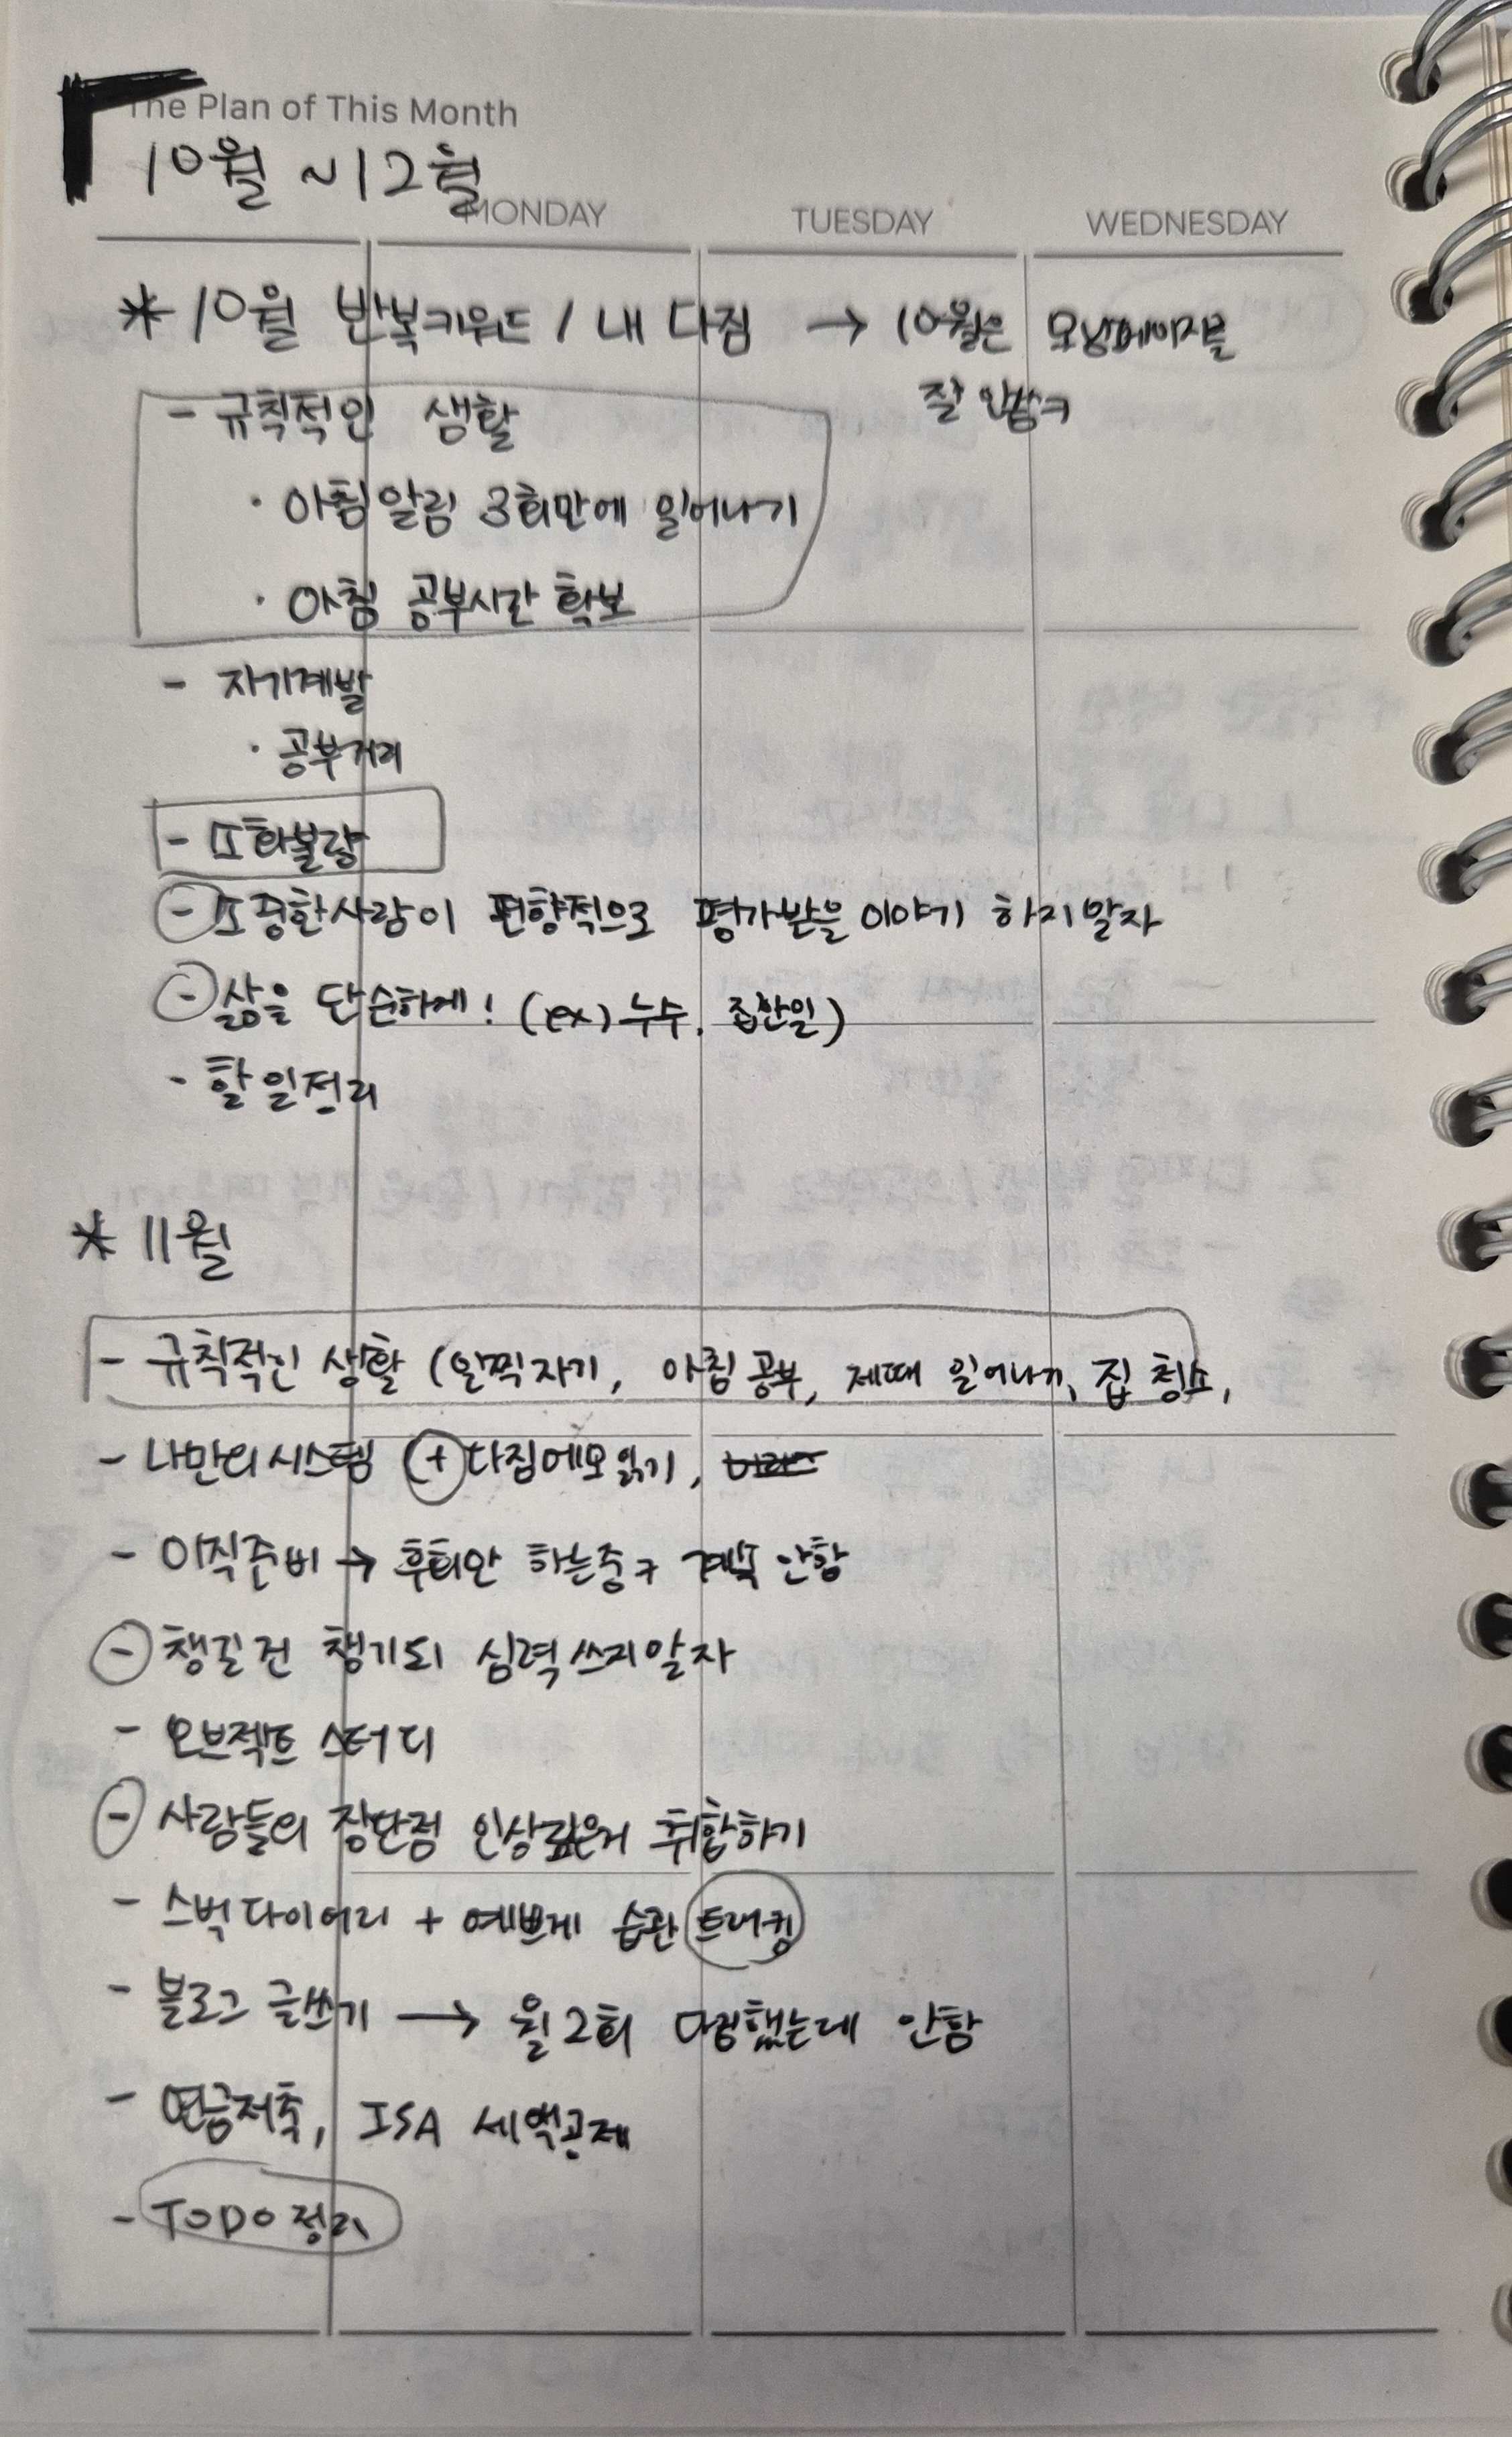 The Plan of This Month
10월 ~ 12월
MONDAY TUESDAY WEDNESDAY
* 10월 반복키워드 / 내 다짐 → 10월은 모닝페이지를
잘 안씀ㅋ
- 규칙적인 생활
· 아침알림 3회만에 일어나기
· 아침 공부시간 확보
- 자기계발
· 공부거리
- 소화불량
- 소중한사람이 편향적으로 평가받을 이야기 하지말자
- 삶을 단순하게! (ex) 누수, 집안일)
- 할일정리
* 11월
- 규칙적인 생활 (일찍자기, 아침 공부, 제때 일어나기, 집 청소,
- 나만의 시스템 (+ 다짐메모 읽기,
- 이직준비 → 후회만 하는중ㅋ 계속 안함
- 챙길건 챙기되 심력쓰지말자
- 오브젝트 스터디
- 사람들의 장단점 인상깊은거 취합하기
- 스벅다이어리 + 예쁘게 습관 트래킹
- 블로그 글쓰기 → 월 2회 다짐했는데 안함
- 연금저축, ISA 세액공제
- TODO 정리